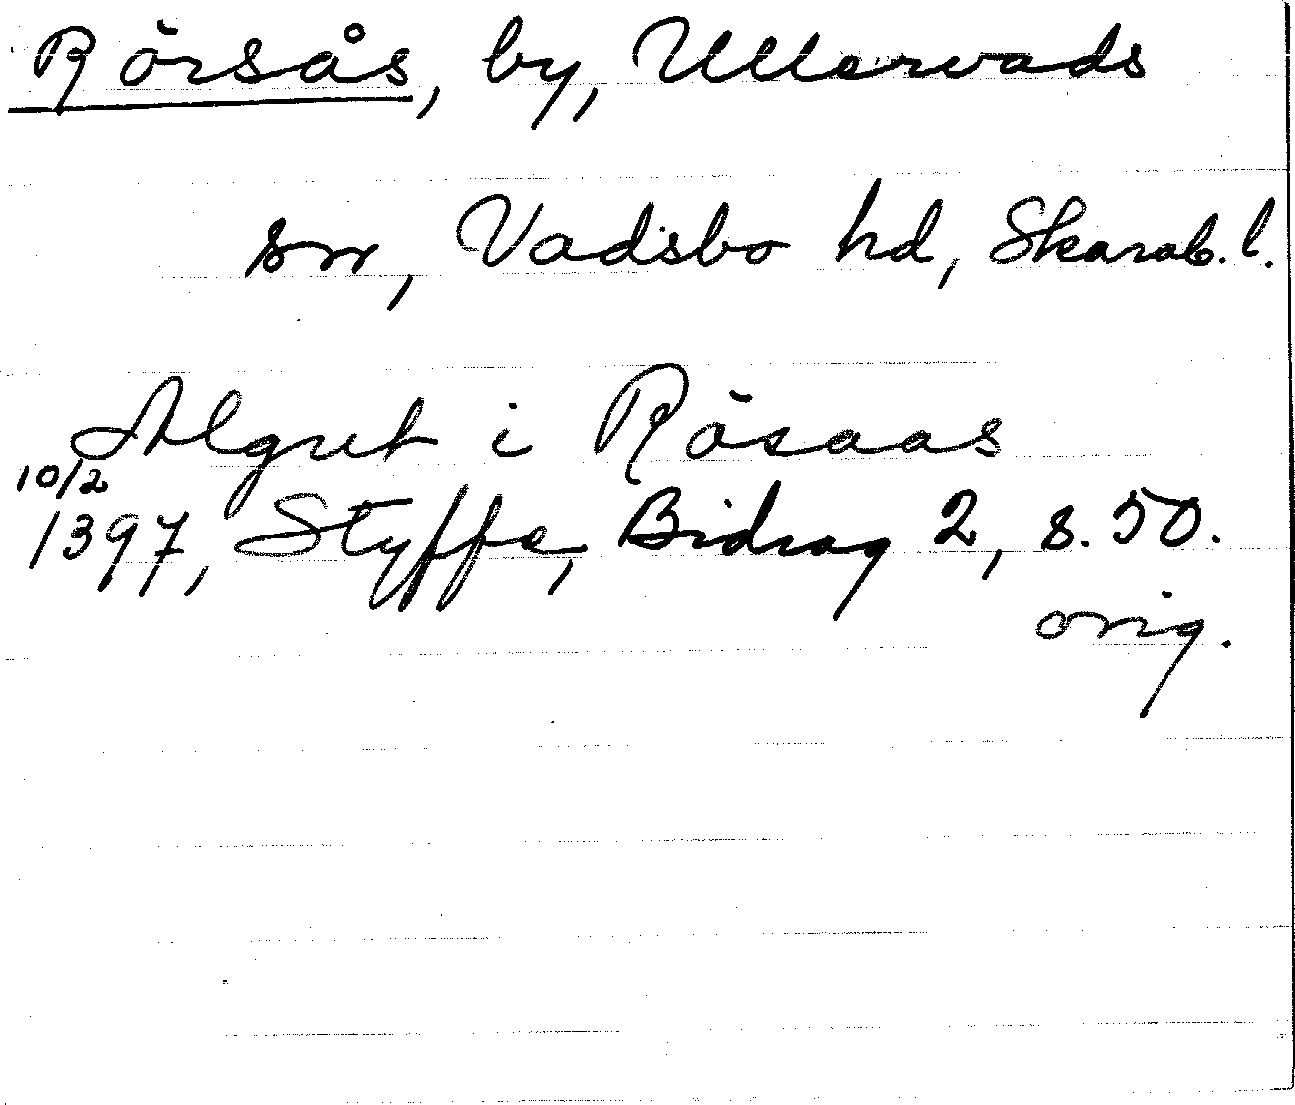 Rörsås, by, Ullervads
sn, Vadsbo hd, Skarab. l.
Algut i Rösaas
10/2
1397, Styffe, Bidrag 2, s. 50.
orig.